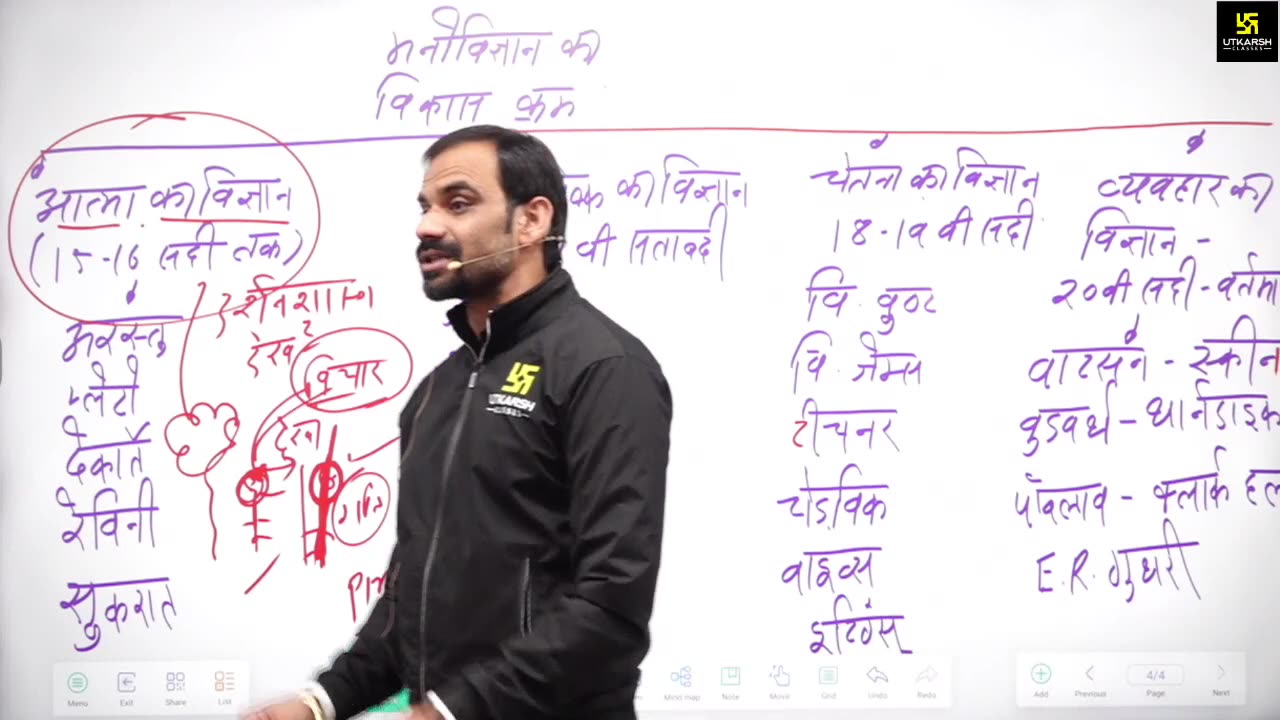 मनोविज्ञान का
विकास क्रम
आत्मा का विज्ञान
(15-16 सदी तक)
अरस्तु
प्लेटो
देकार्ते
रेविनी
सुकरात
दर्शनशास्त्र
देख
विचार
का विज्ञान
वी शताब्दी
चेतना का विज्ञान
18-19 वी सदी
वि. वुण्ट
वि. जेम्स
टीचनर
चेडविक
वाइव्स
इटिंग्स
व्यवहार का
विज्ञान -
20वी सदी - वर्तमा
वाटसन - स्कीन
वुडवर्थ - थार्नडाइक
पॉवलाव - क्लार्क हल
E.R. गुथरी
UTKARSH
CLASSES
UTKARSH
CLASSES
Menu
Exit
Share
List
Mind map
Note
Move
Grid
Undo
Redo
Add
Previous
4/4
Page
Next